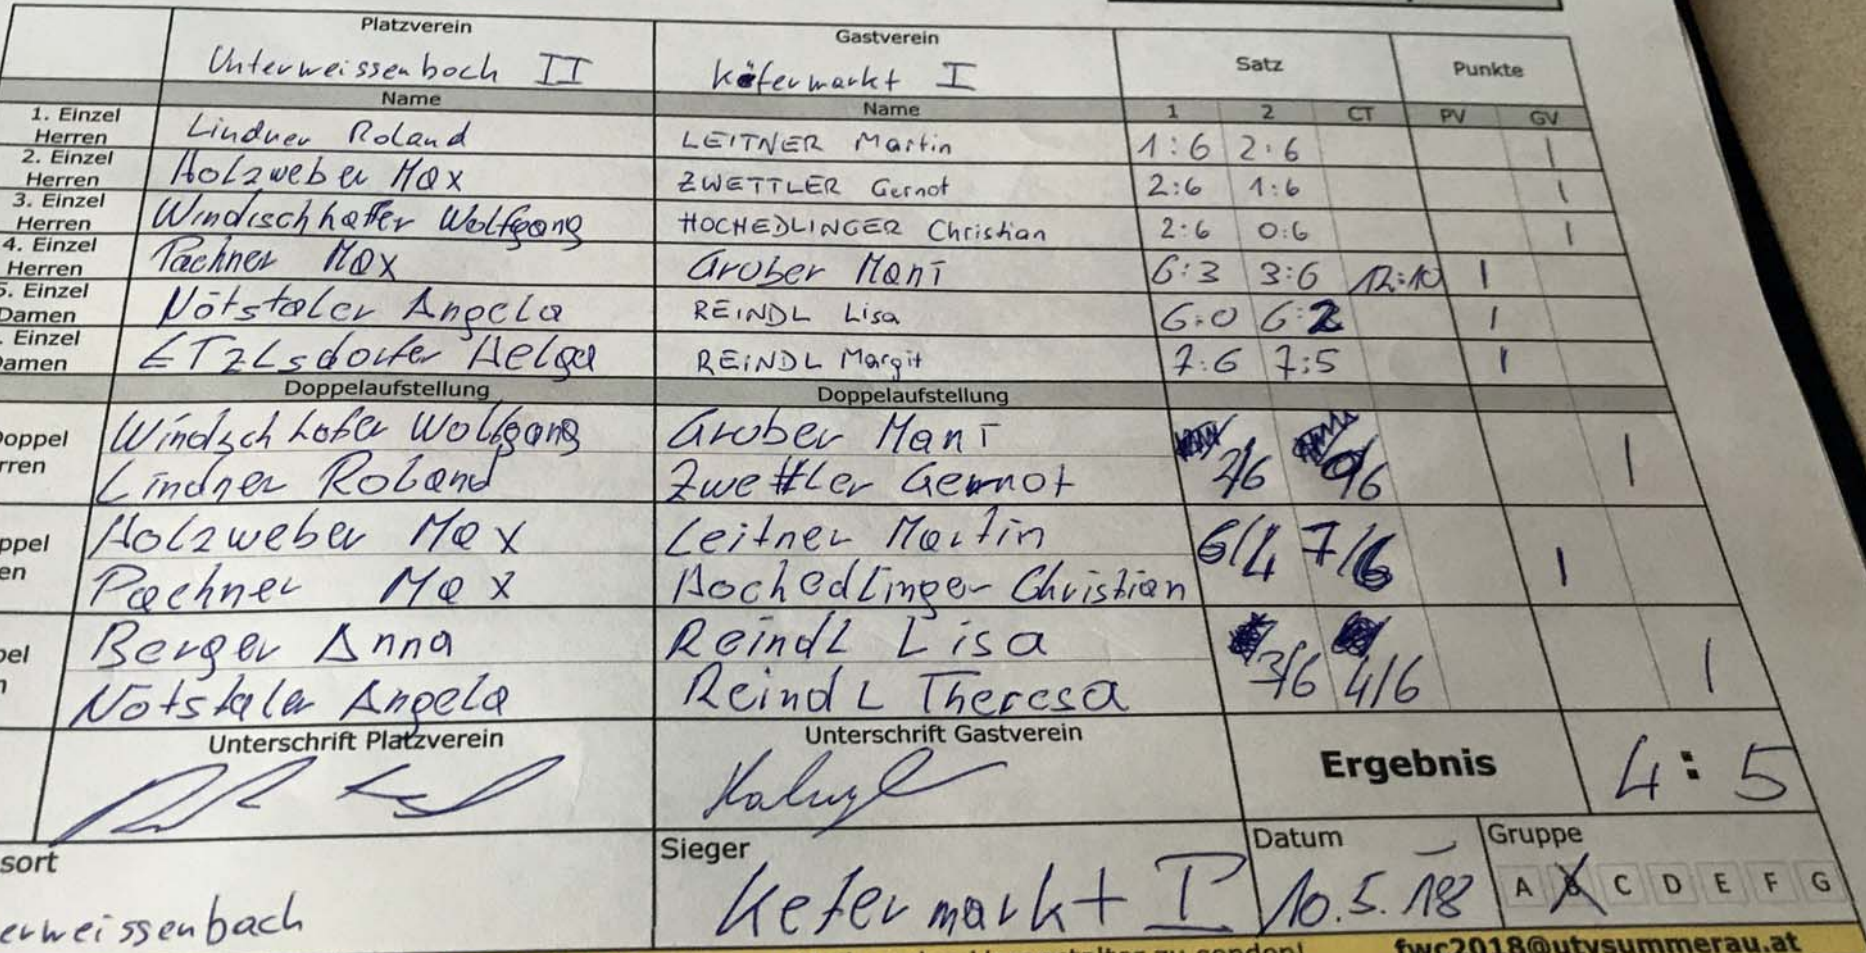 Platzverein Gastverein Satz Punkte
Unterweissenbach II Käfermarkt I
Name Name 1 2 CT PV GV
1. Einzel Herren Lindner Roland LEITNER Martin 1:6 2:6 1
2. Einzel Herren Holzweber Max ZWETTLER Gernot 2:6 1:6 1
3. Einzel Herren Windischhoffer Wolfgang HOCHEDLINGER Christian 2:6 0:6 1
4. Einzel Herren Pachner Max Gruber Mani 6:3 3:6 12:10 1
5. Einzel Damen Nötstaler Angela REINDL Lisa 6:0 6:2 1
. Einzel Damen ETzLsdorfer Helga REINDL Margit 7:6 7:5 1
Doppelaufstellung Doppelaufstellung
oppel Windischhofer Wolfgang Gruber Mani
rren Lindner Roland Zwettler Gernot 2/6 0/6 1
ppel Holzweber Max Leitner Martin 6/4 7/6 1
en Pachner Max Hochedlinger Christian
pel Berger Anna Reindl Lisa
n Nötstaler Angela Reindl Theresa 3/6 4/6 1
Unterschrift Platzverein Unterschrift Gastverein Ergebnis 4:5
sort Sieger Datum Gruppe
erweissenbach Kefermarkt I 10.5.18 A B C D E F G
fwc2018@utvsummerau.at